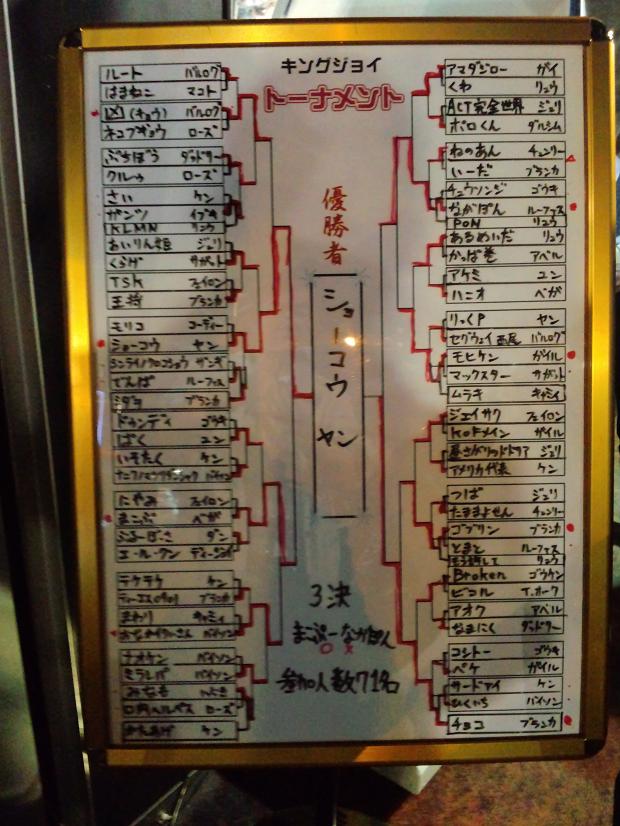 キングジョイ
トーナメント
優勝者
ショーコウ
ヤン
3決
まこぷーながぽん
参加人数71名
ルート バルログ
はまねこ マコト
凶(キョウ) バルログ
ネコプギョウ ローズ
ぷちぼう ダッドリー
クルゥ ローズ
さい ケン
ガンツ イブキ
KLMN リュウ
あいりん姫 ジュリ
くらげ サガット
TSK フェイロン
王将 ブランカ
モリコ コーディー
ショーコウ ヤン
でんぱ ルーファス
ブランカ
ドゥンディ ゴウキ
ばく ユン
いそたく ケン
バイソン
にゃみ フェイロン
まこぷー ベガ
ダン
エールークン ディージェイ
テケテケ ケン
ブランカ
まわり キャミィ
バイソン
ナオケン バイソン
ミラレパ バイソン
みなき
口内ヘルペス ローズ
からあげ ケン
アマダジロー ガイ
くわ リュウ
ACT完全世界 ジュリ
ポロくん ダルシム
ねのあん チュンリー
いーだ ブランカ
チュウソンジ ゴウキ
ながぽん ルーファス
PON リュウ
あるめいだ リュウ
かっぱ巻 アベル
アケミ ユン
ハニオ ベガ
りっくP ヤン
セグウェイ西尾 バルログ
モヒケン ガイル
マックスター サガット
ムラキ キャミィ
ジェイサク フェイロン
KOFメイン ガイル
ジュリ
アメリカ代表 ケン
つば ジュリ
たままよせん チュンリー
ゴブリン ブランカ
とまと ルーファス
リュウ
Broken ゴウケン
ピコル T.ホーク
アオク アベル
なまにく ダッドリー
コシトー ゴウキ
ペケ ガイル
サードアイ ケン
バイソン
チョコ ブランカ